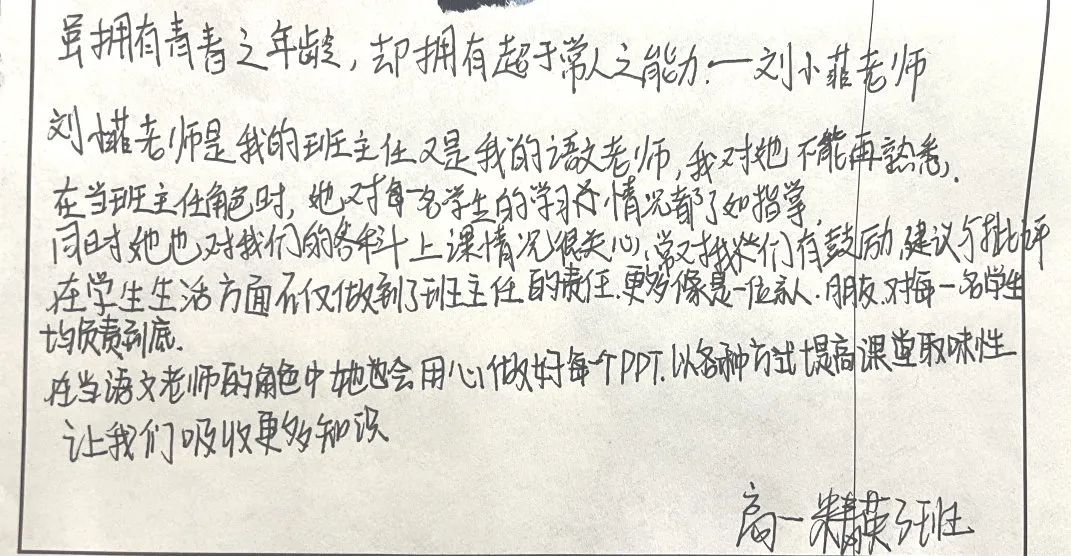 虽拥有青青之年龄，却拥有超于常人之能力.一刘小菲老师
刘小菲老师是我的班主任又是我的语文老师,我对她不能再熟悉.
在当班主任角色时,她对每一名学生的学习情况都了如指掌.
同时她也对我们的各科上课情况很关心,常对我们有鼓励,建议与批评
在学生生活方面不仅做到了班主任的责任.更多像是一位亲人.朋友.对每一名学生
均负责到底.
在当语文老师的角色中她也会用心做好每个PPT.以各种方式提高课堂取味性
让我们吸收更多知识
高一精英3班